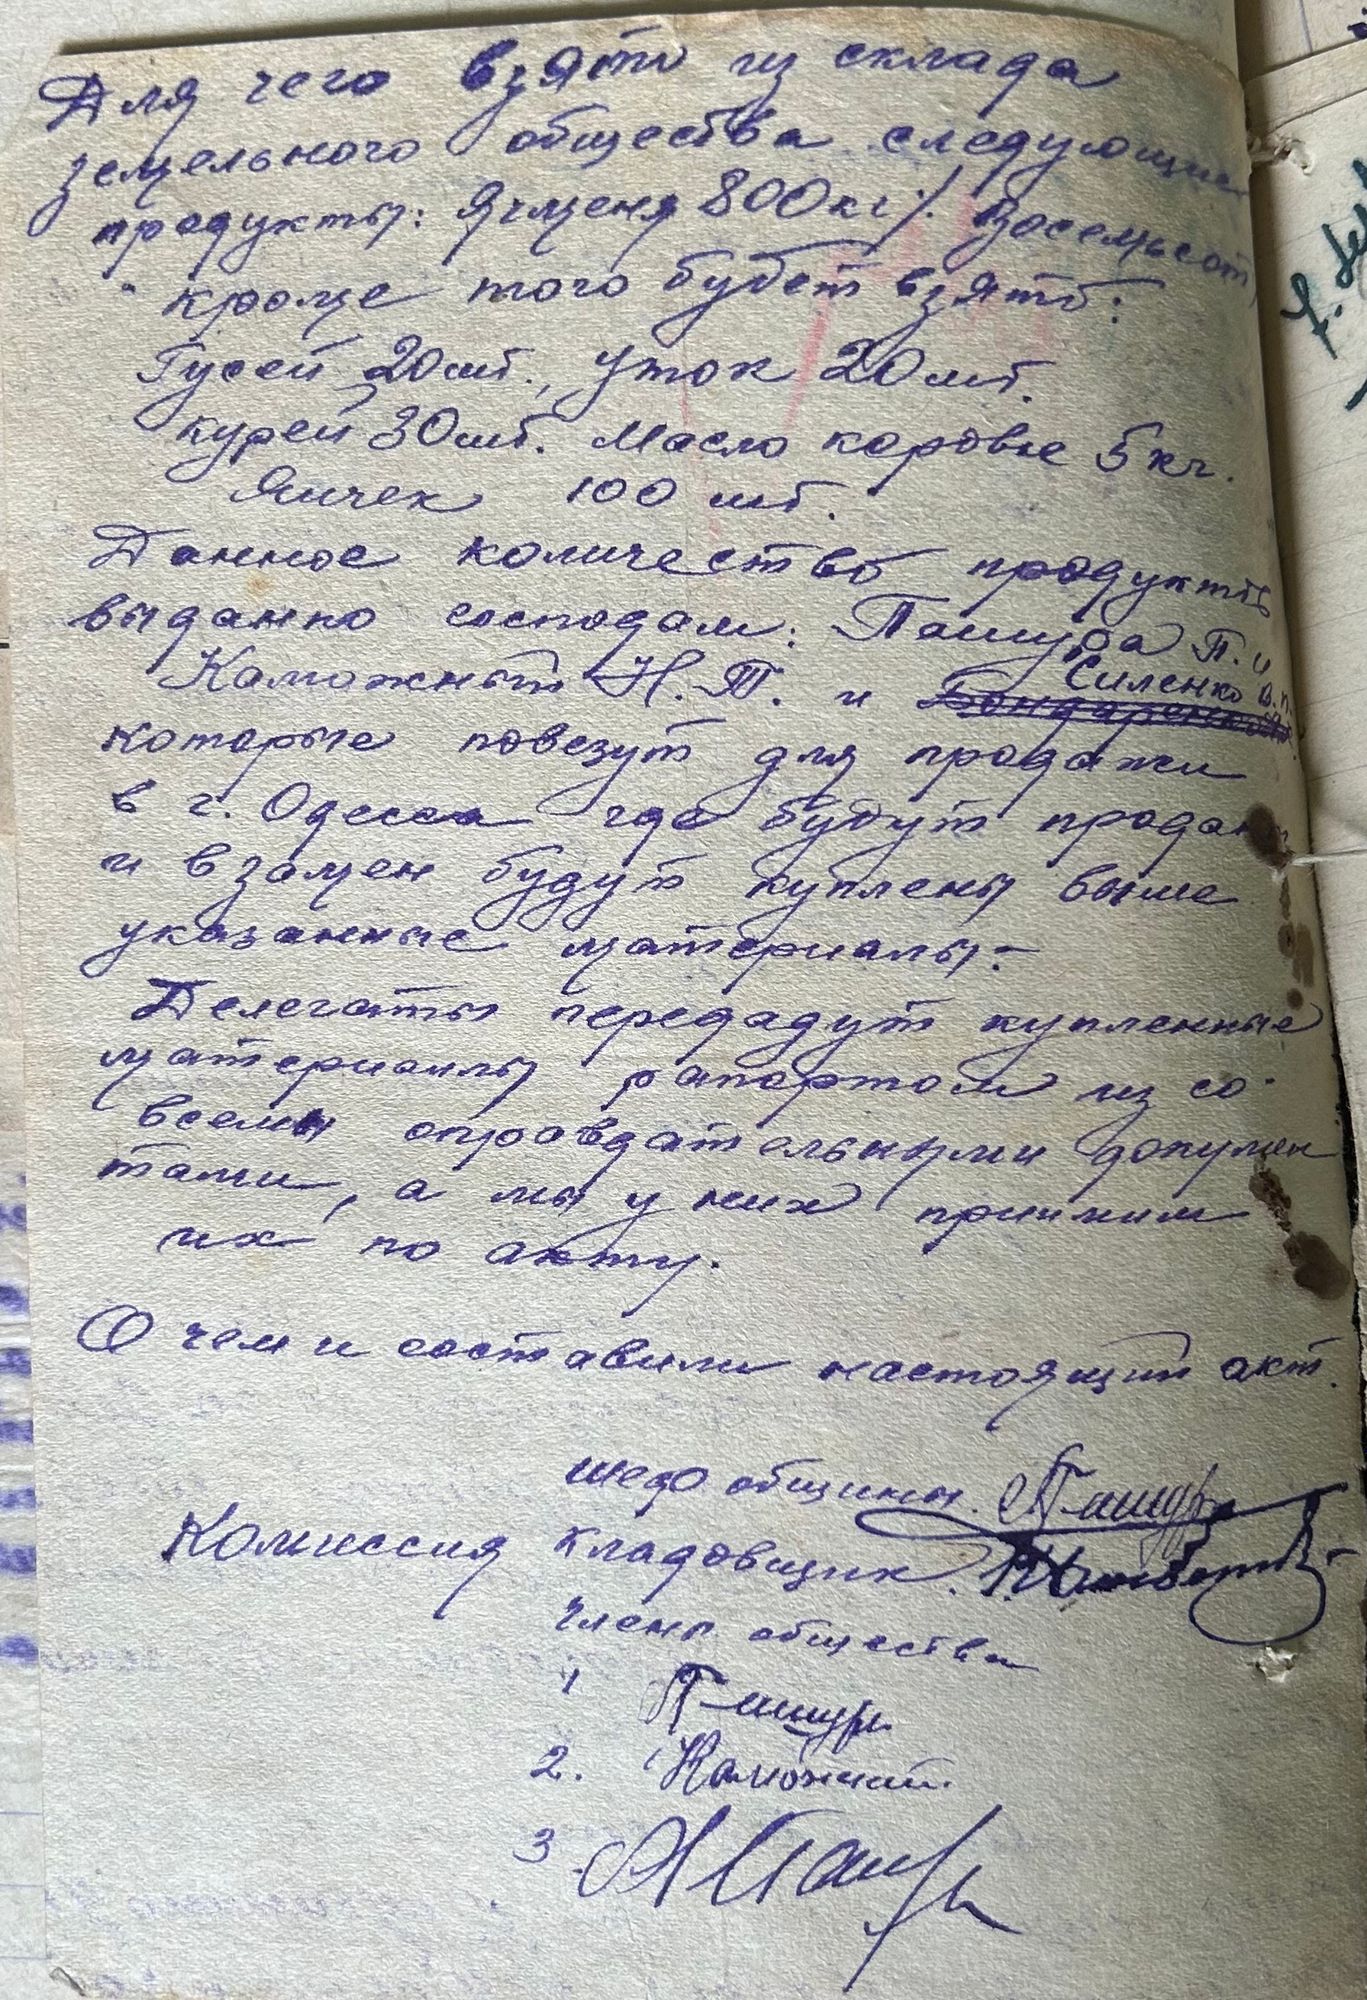 Для чего взято из склада
земельного общества следующие
продукты: Ячменя 800кг/. Восемьсот/
кроме того будет взято:
Гусей 20шт., уток 20шт.
курей 30шт. Масло коровье 5кг.
Яичек 100 шт.
Данное количество продуктов
выданно господам: Пашура П. и
Каможный Н.Т. и Силенко В.П.
которые повезут для продажи
в г. Одесса где будут проданы
и взамен будут куплены выше
указанные материалы:-
Делегаты передадут купленные
материалы рапортом из со
всеми оправдательными докумен
тами, а мы у них приимем
их по акту.
О чем и составили настоящий акт.
Шеф общины. Пашура
Комиссия кладовщик.
члены общества
1 Пашура
2. Каможный
3.